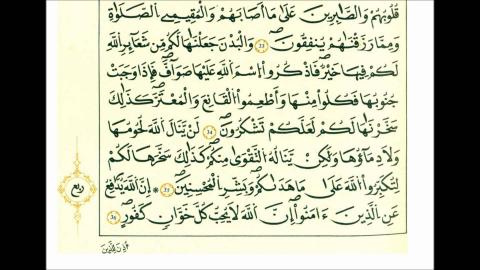 قُلُوبُهُمْ وَالصَّٰبِرِينَ عَلَىٰ مَا أَصَابَهُمْ وَالْمُقِيمِي الصَّلَوٰةِ
وَمِمَّا رَزَقْنَٰهُمْ يُنفِقُونَ 33 وَالْبُدْنَ جَعَلْنَٰهَا لَكُم مِّن شَعَٰٓئِرِ اللَّهِ
لَكُمْ فِيهَا خَيْرٌ فَاذْكُرُوا اسْمَ اللَّهِ عَلَيْهَا صَوَآفَّ فَإِذَا وَجَبَتْ
جُنُوبُهَا فَكُلُوا مِنْهَا وَأَطْعِمُوا الْقَانِعَ وَالْمُعْتَرَّ كَذَٰلِكَ
سَخَّرْنَٰهَا لَكُمْ لَعَلَّكُمْ تَشْكُرُونَ 34 لَنْ يَّنَالَ اللَّهَ لُحُومُهَا
وَلَا دِمَآؤُهَا وَلَٰكِنْ يَّنَالُهُ التَّقْوَىٰ مِنكُمْ كَذَٰلِكَ سَخَّرَهَا لَكُمْ
لِتُكَبِّرُوا اللَّهَ عَلَىٰ مَا هَدَىٰكُمْ وَبَشِّرِ الْمُحْسِنِينَ 35 * إِنَّ اللَّهَ يُدَٰفِعُ
ربع
عَنِ الَّذِينَ ءَامَنُوا إِنَّ اللَّهَ لَا يُحِبُّ كُلَّ خَوَّانٍ كَفُورٍ 36
أذن للذين